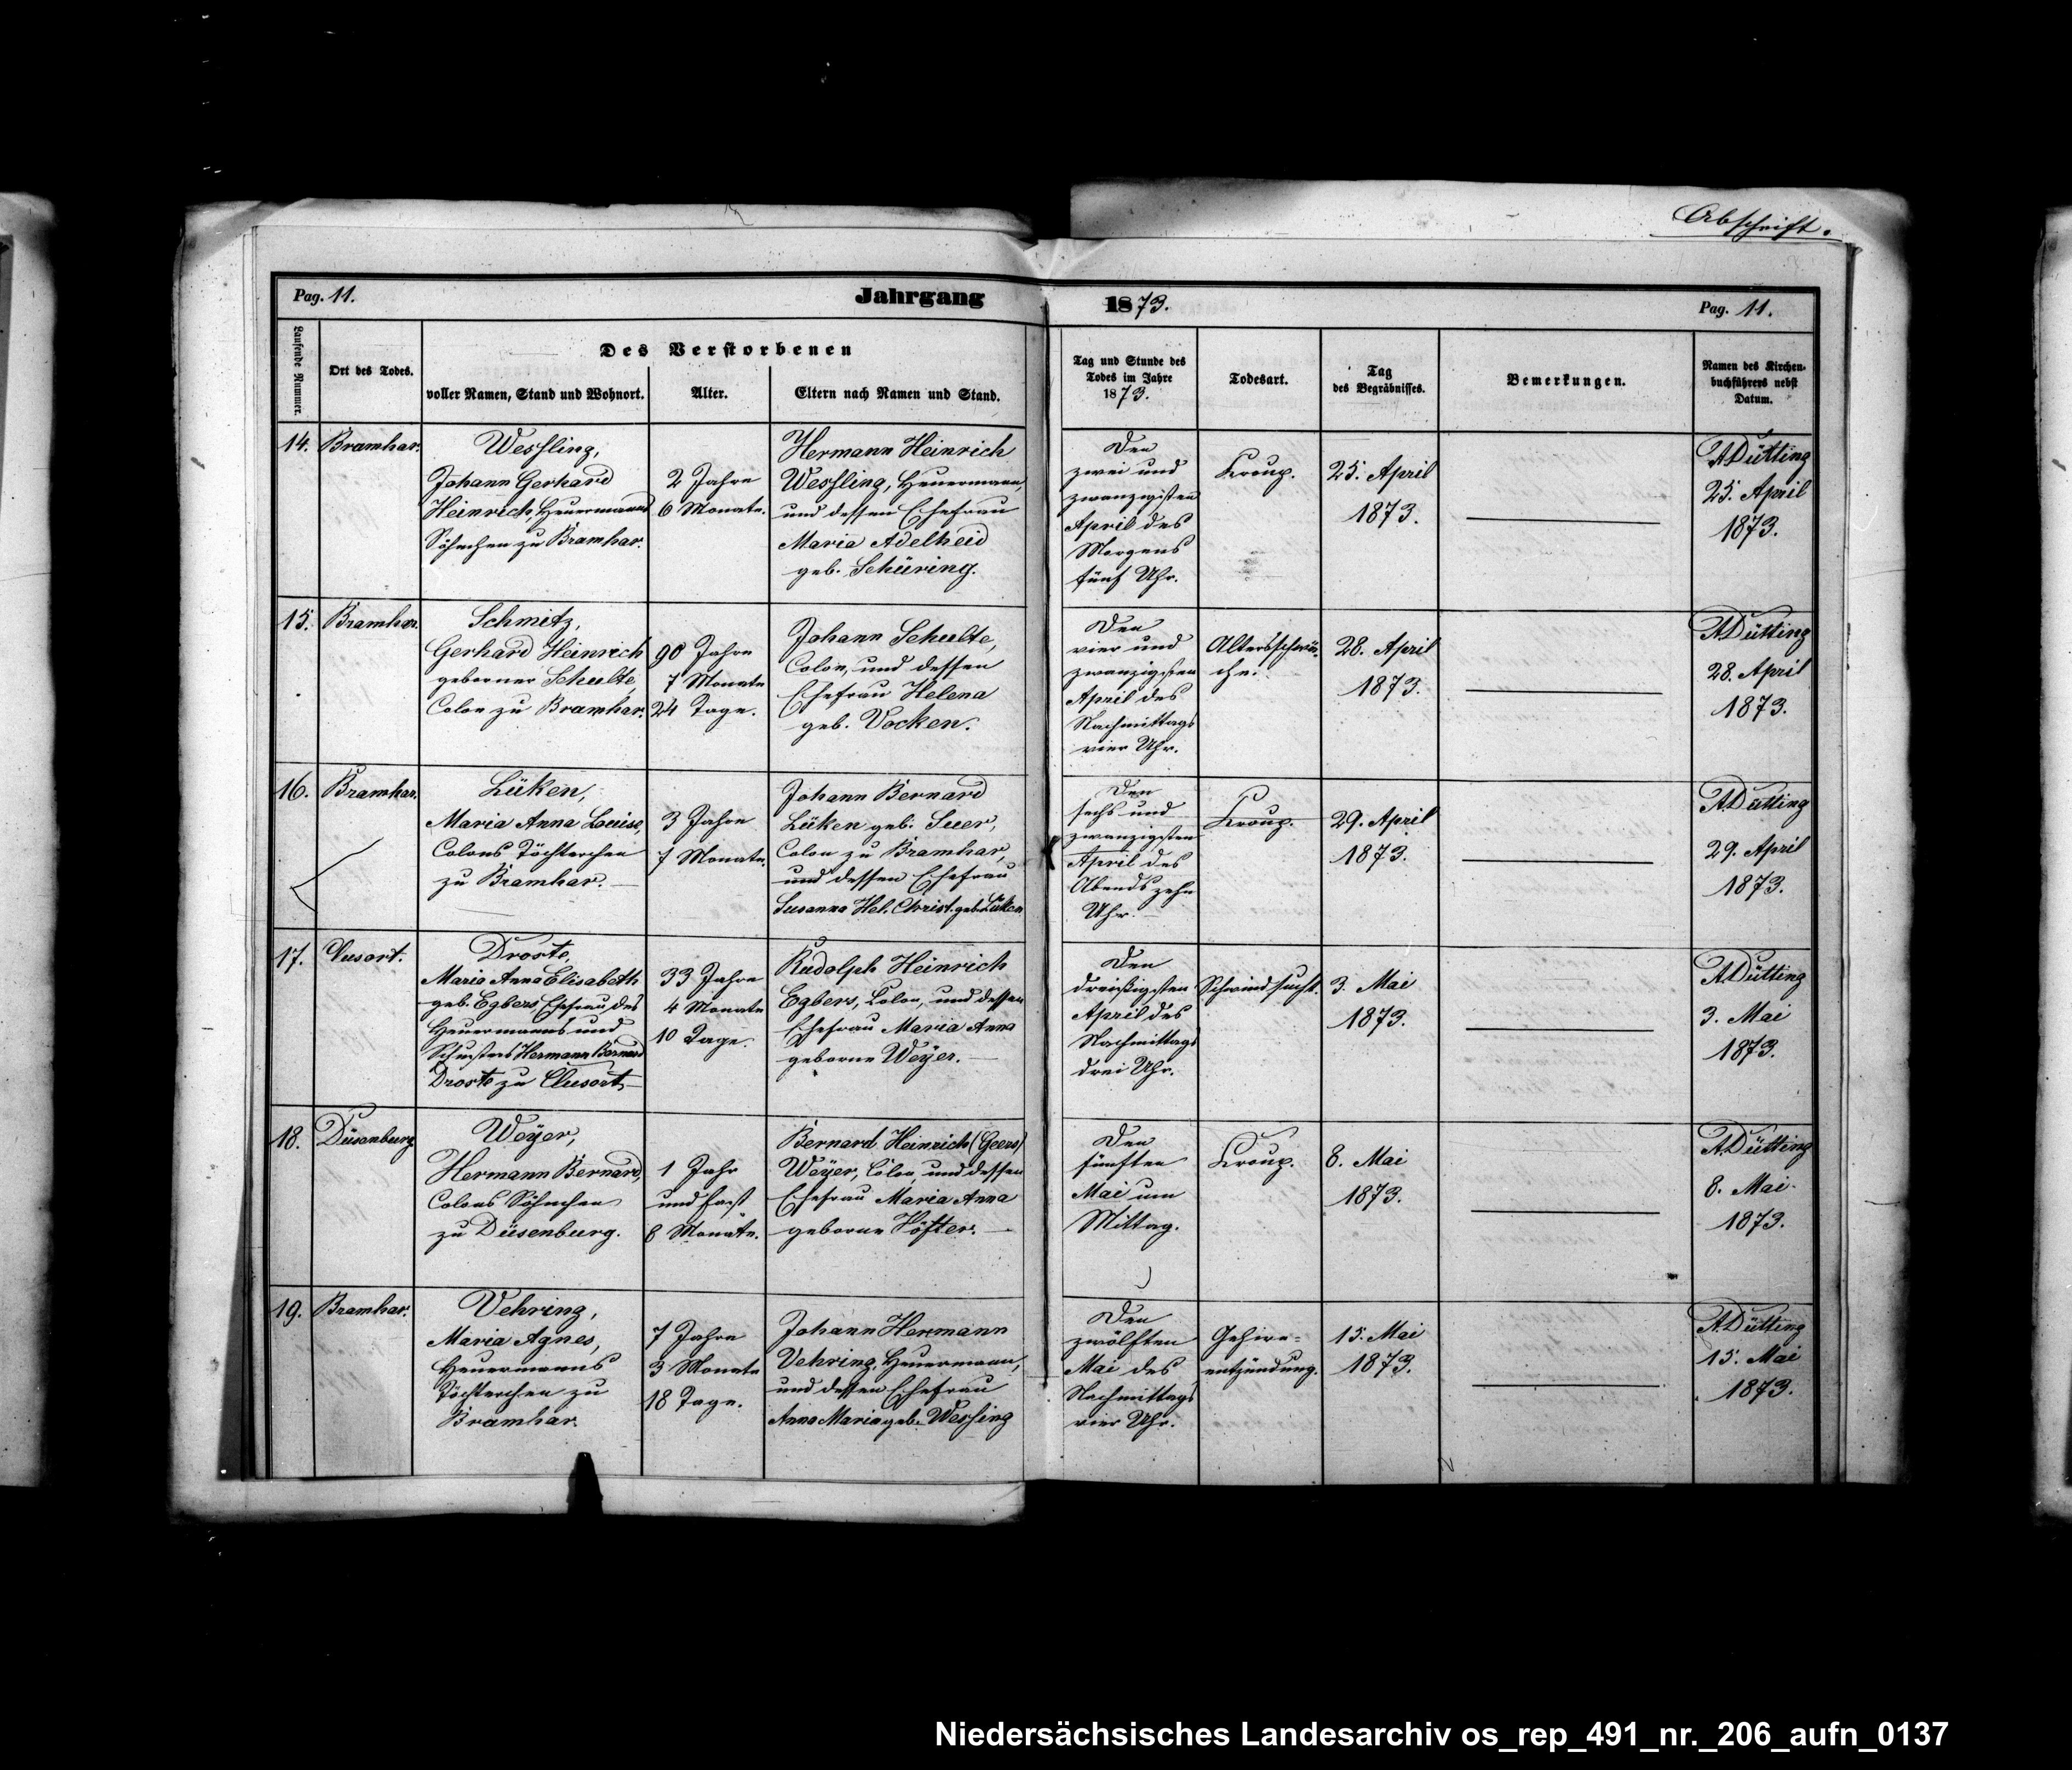 Abschrift.
Pag. 11.
Jahrgang 1873.
Pag. 11.
Laufende Nummer.
Ort des Todes.
Des Verstorbenen
voller Namen, Stand und Wohnort.
Alter.
Eltern nach Namen und Stand.
Tag und Stunde des
Todes im Jahre
1873.
Todesart.
Tag
des Begräbnisses.
Bemerkungen.
Namen des Kirchen-
buchführers nebst
Datum.
14.
Bramhar.
Wessling,
Johann Gerhard
Heinrich, Heuermanns
Söhnchen zu Bramhar.
2 Jahre
6 Monate.
Hermann Heinrich
Wessling, Heuermann,
und dessen Ehefrau
Maria Adelheid
geb. Schüring.
Den
zwei und
zwanzigsten
April des
Morgens
fünf Uhr.
Kroup.
25. April
1873.
A Dütting
25. April
1873.
15.
Bramhar.
Schmitz,
Gerhard Heinrich
geborner Schulte,
Colon zu Bramhar.
90 Jahre
7 Monate
24 Tage.
Johann Schulte,
Colon, und dessen
Ehefrau Helena
geb. Vocken.
Den
vier und
zwanzigsten
April des
Nachmittags
vier Uhr.
Altersschwä-
che.
28. April
1873.
A Dütting
28. April
1873.
16.
Bramhar.
Lüken,
Maria Anna Louise,
Colons Töchterchen
zu Bramhar.
3 Jahre
7 Monate.
Johann Bernard
Lüken geb. Suer,
Colon zu Bramhar,
und dessen Ehefrau
Susanna Hel. Christ. geb. Lüken
Den
sechs und
zwanzigsten
April des
Abends zehn
Uhr.
Kroup.
29. April
1873.
A Dütting
29. April
1873.
17.
Clusort.
Droste,
Maria Anna Elisabeth
geb. Egbers Ehefrau des
Heuermanns und
Schusters Hermann Bernard
Droste zu Clusort
33 Jahre
4 Monate
10 Tage.
Rudolph Heinrich
Egbers, Colon, und dessen
Ehefrau Maria Anna
geborne Weÿer.
Den
dreißigsten
April des
Nachmittags
drei Uhr.
Schwindsucht.
3. Mai
1873.
A Dütting
3. Mai
1873.
18.
Düsenburg
Weÿer,
Hermann Bernard,
Colons Söhnchen
zu Düsenburg.
1 Jahr
und fast
8 Monate.
Bernard Heinrich (Geers)
Weÿer, Colon, und dessen
Ehefrau Maria Anna
geborne Höfter.
Den
fünften
Mai um
Mittag.
Kroup.
8. Mai
1873.
A Dütting
8. Mai
1873.
19.
Bramhar.
Vehring,
Maria Agnes,
Heuermanns
Töchterchen zu
Bramhar.
7 Jahre
3 Monate
18 Tage.
Johann Hermann
Vehring, Heuermann,
und dessen Ehefrau
Anna Maria geb. Wessing
Den
zwölften
Mai des
Nachmittags
vier Uhr.
Gehirn-
entzündung.
15. Mai
1873.
A. Dütting
15. Mai
1873.
Niedersächsisches Landesarchiv os_rep_491_nr._206_aufn_0137